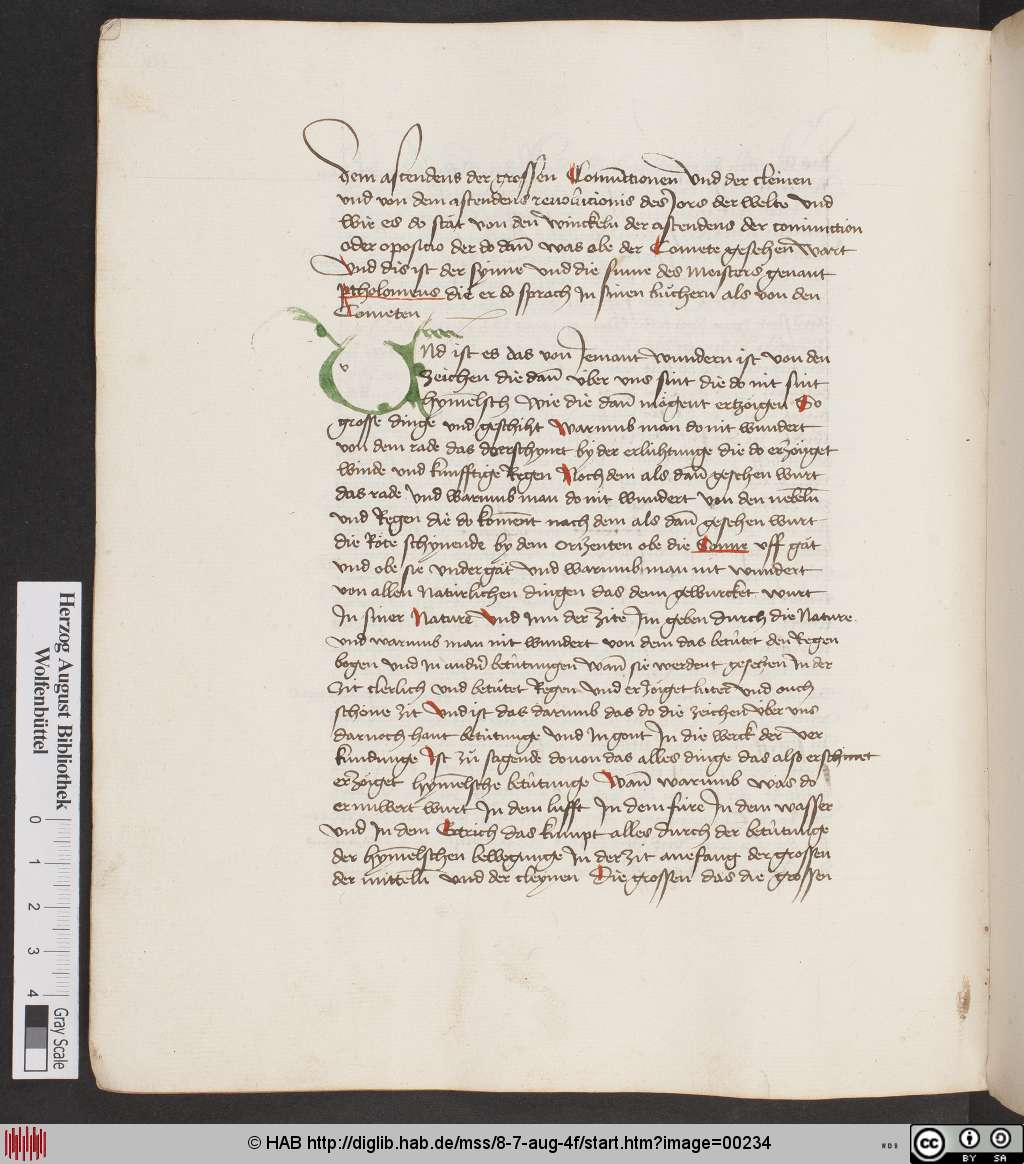 dem ascendens der grossen Coniu̅ctionen Vnd der cleinen
vnd von dem ascendens reuolucionis des Jors der welte Vnd
wie es do stat von den winckeln der ascendens der coniunction
oder oposicio der do dan̅ was obe der Comete gesehen wart
Vnd dis ist der synne vnd die sinne des meisters genant
ptholomeus die er do sprach In sinen buͤchern als von den
Cometen
VNd ist es das von Jemant wundern ist von den
zeichen die dan̅ vͤber vns sint die do nit sint
hym̅elsch Wie die dan̅ moͤgent erzoͤigen So
grosse dinge vnd geschiht Warumb man do nit wundert
von dem rade das do erschynet by der erluhtunge die do erzoͤiget
winde vnd kunfftige Regen Noch dem als dan̅ gesehen wurt
das rade Vnd warumb man do nit wundert von den nebeln̅
vnd Regen die do kom̅ent nach dem als dan̅ gesehen wurt
die Roͤte schynende by dem Orizenten obe die Sonne vff gat
vnd obe sie vnder gat Vnd warumb man nit wundert
von allen Naturlichen dingen das dem gewurcket wurt
In siner Nature Vnd Jnn der Zite Jm geben durch die Nature.
vnd warumb man nit wundert von dem das betuͤtet den Regen
bogen Vnd In andern betuͤtungen wan̅ sie werdent gesehen In der
Zit clerlich vnd betuͤtet Regen Vnd erzoͤiget luter Vnd ouch
schoͤne zit Vnd ist das darumb das do die zeichen vͤber vns
darnoch hant betuͤtunge vnd In gont In die werck der ver
kundunge Ist zuͤ sagende douon das alles dinge das also erschinet
erzoͤiget hym̅elsche betuͤtunge Wan̅ warumb was do
ernuwert wurt In dem lufft In dem fure In dem wasser
vnd In dem Ertrich das kumpt alles durch der betuͤtunge
der hym̅elschen bewegunge In der zit anefang der grossen
der mitteln̅ Vnd der cleynen Die grossen das die grossen
Herzog August Bibliothek
Wolfenbüttel
0 1 2 3 4
Gray Scale
© HAB http://diglib.hab.de/mss/8-7-aug-4f/start.htm?image=00234
WDB
cc BY SA